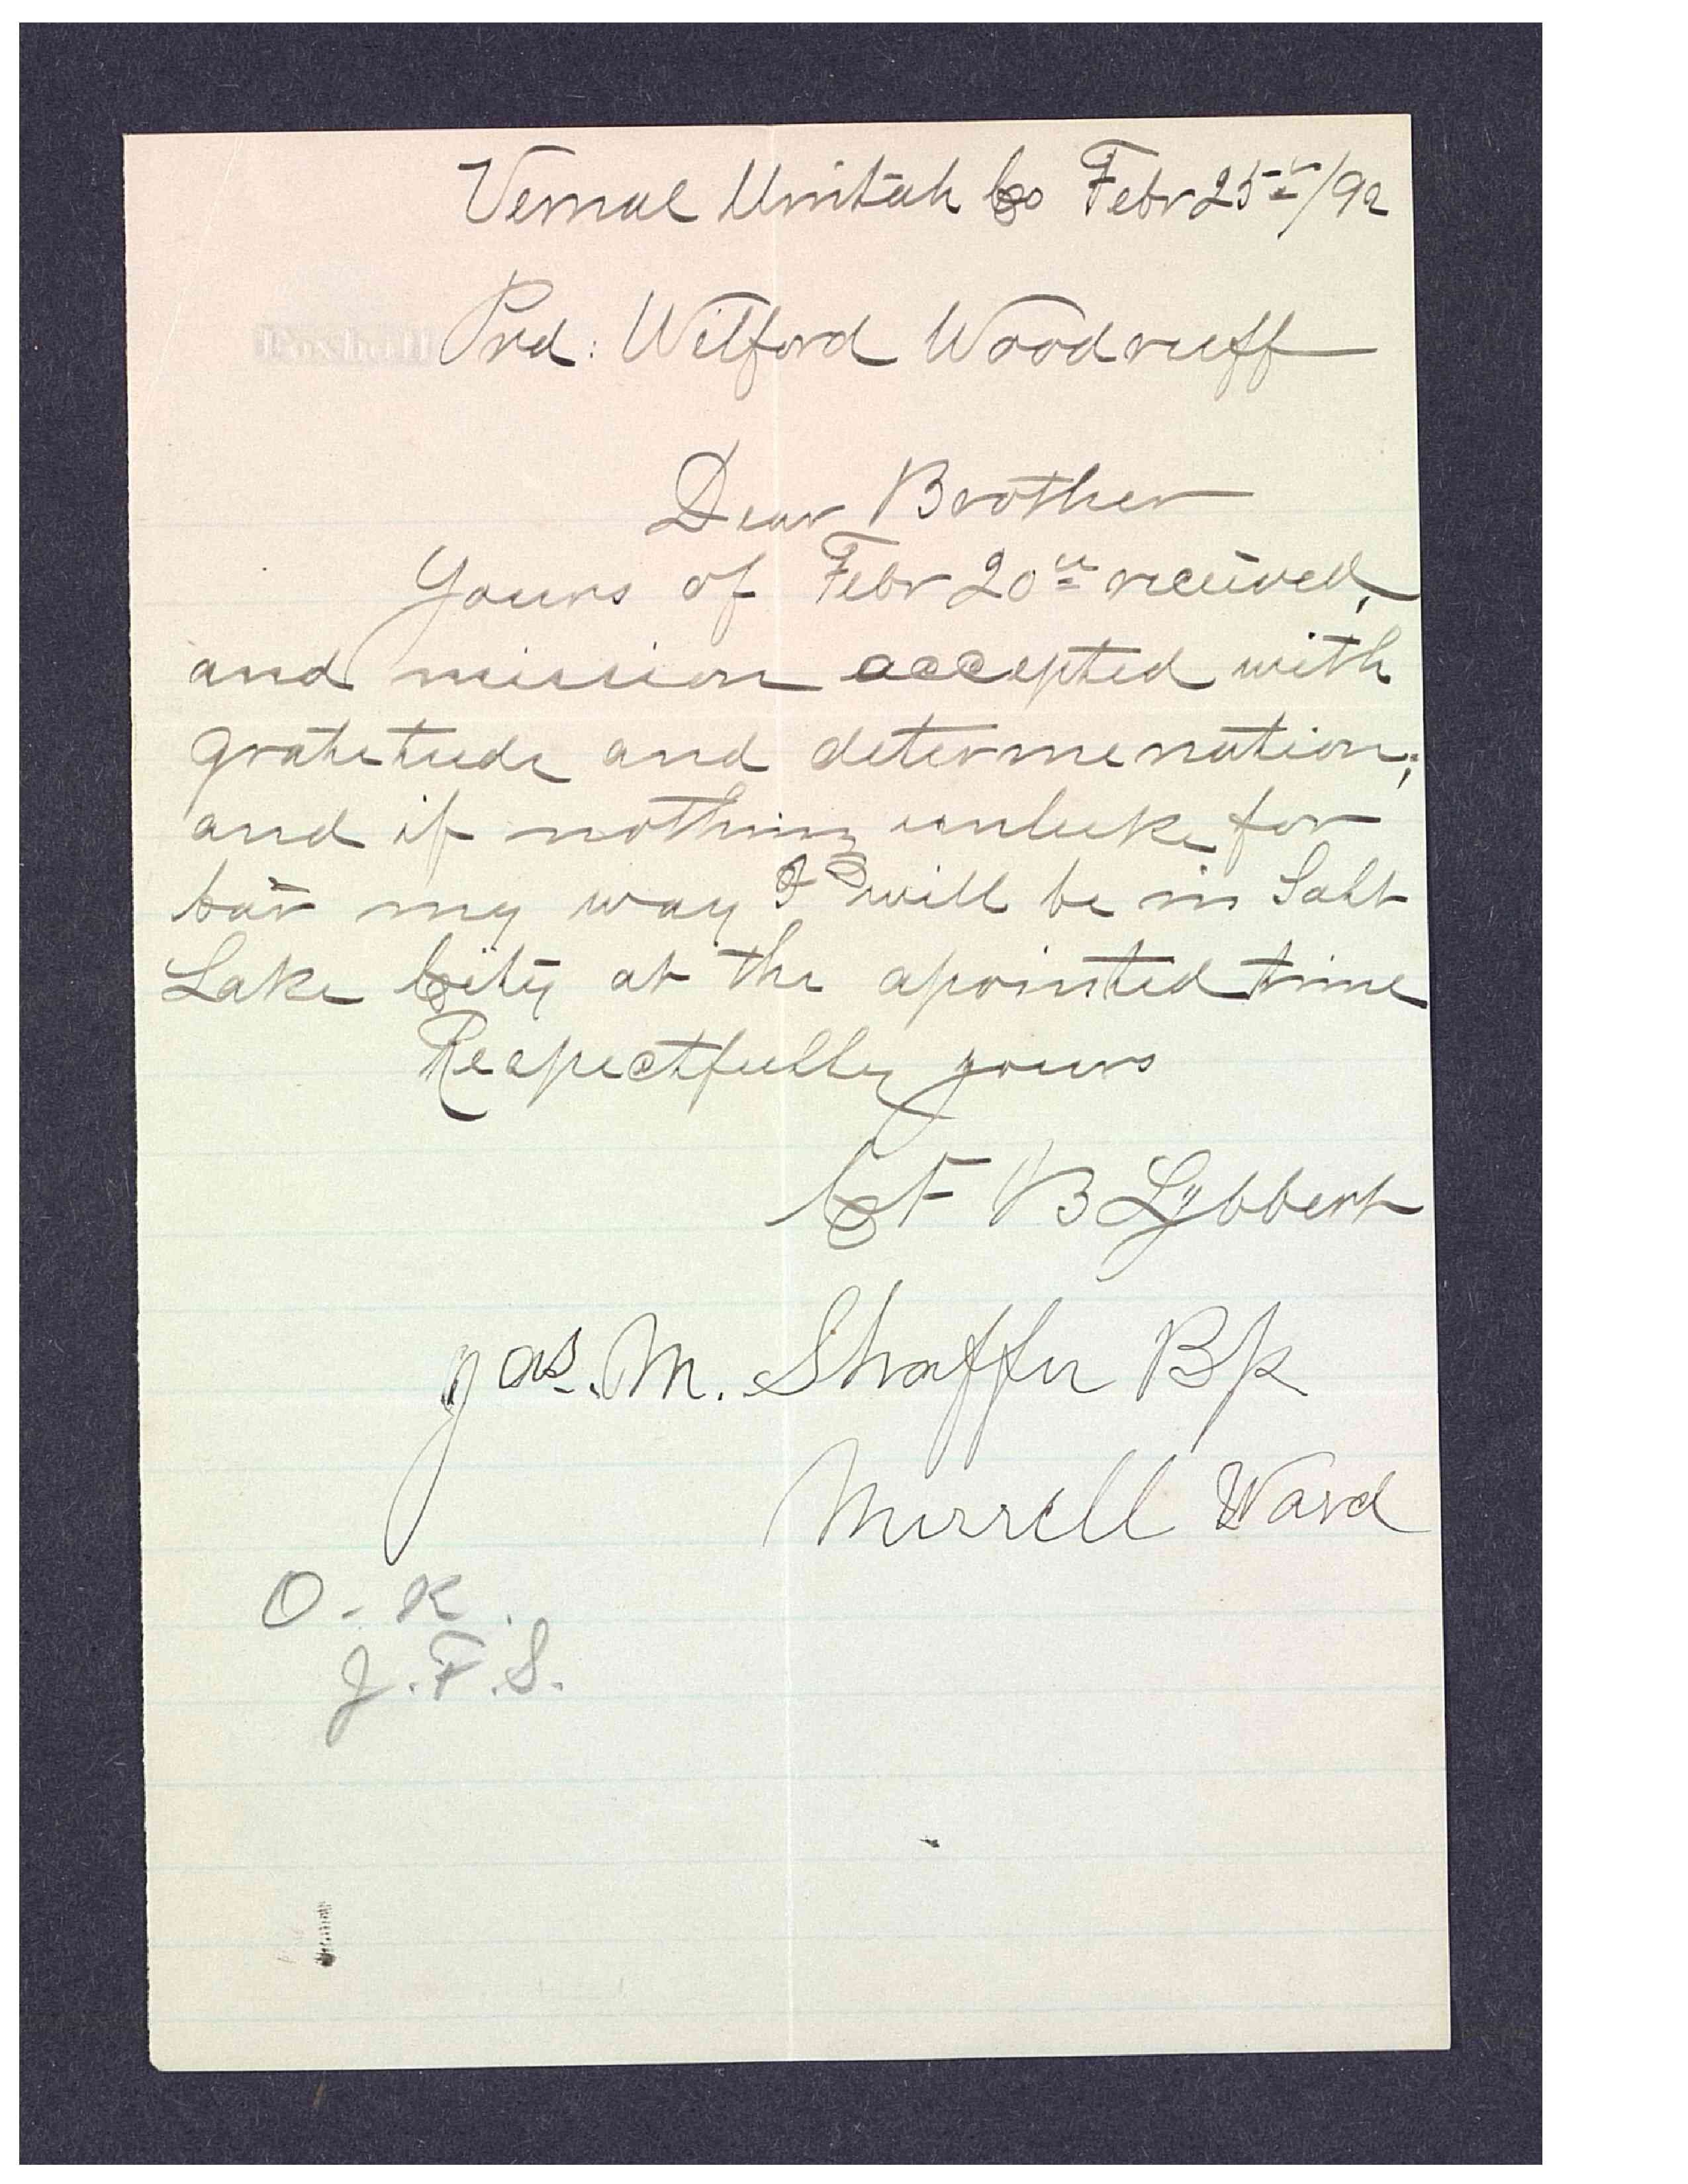 Vernal Uintah Co Febr 25th/92
Prd: Wilford Woodruff
Dear Brother
Yours of Febr 20th received,
and mission accepted with
gratetude and determenation;
and if nothing unluke for
bar my way I will be in Salt
Lake City at the apointed time
Respectfully yours
C F B Lybbert
Jas. M. Shaffer Bp
Merrell Ward
O. K.
J. F. S.